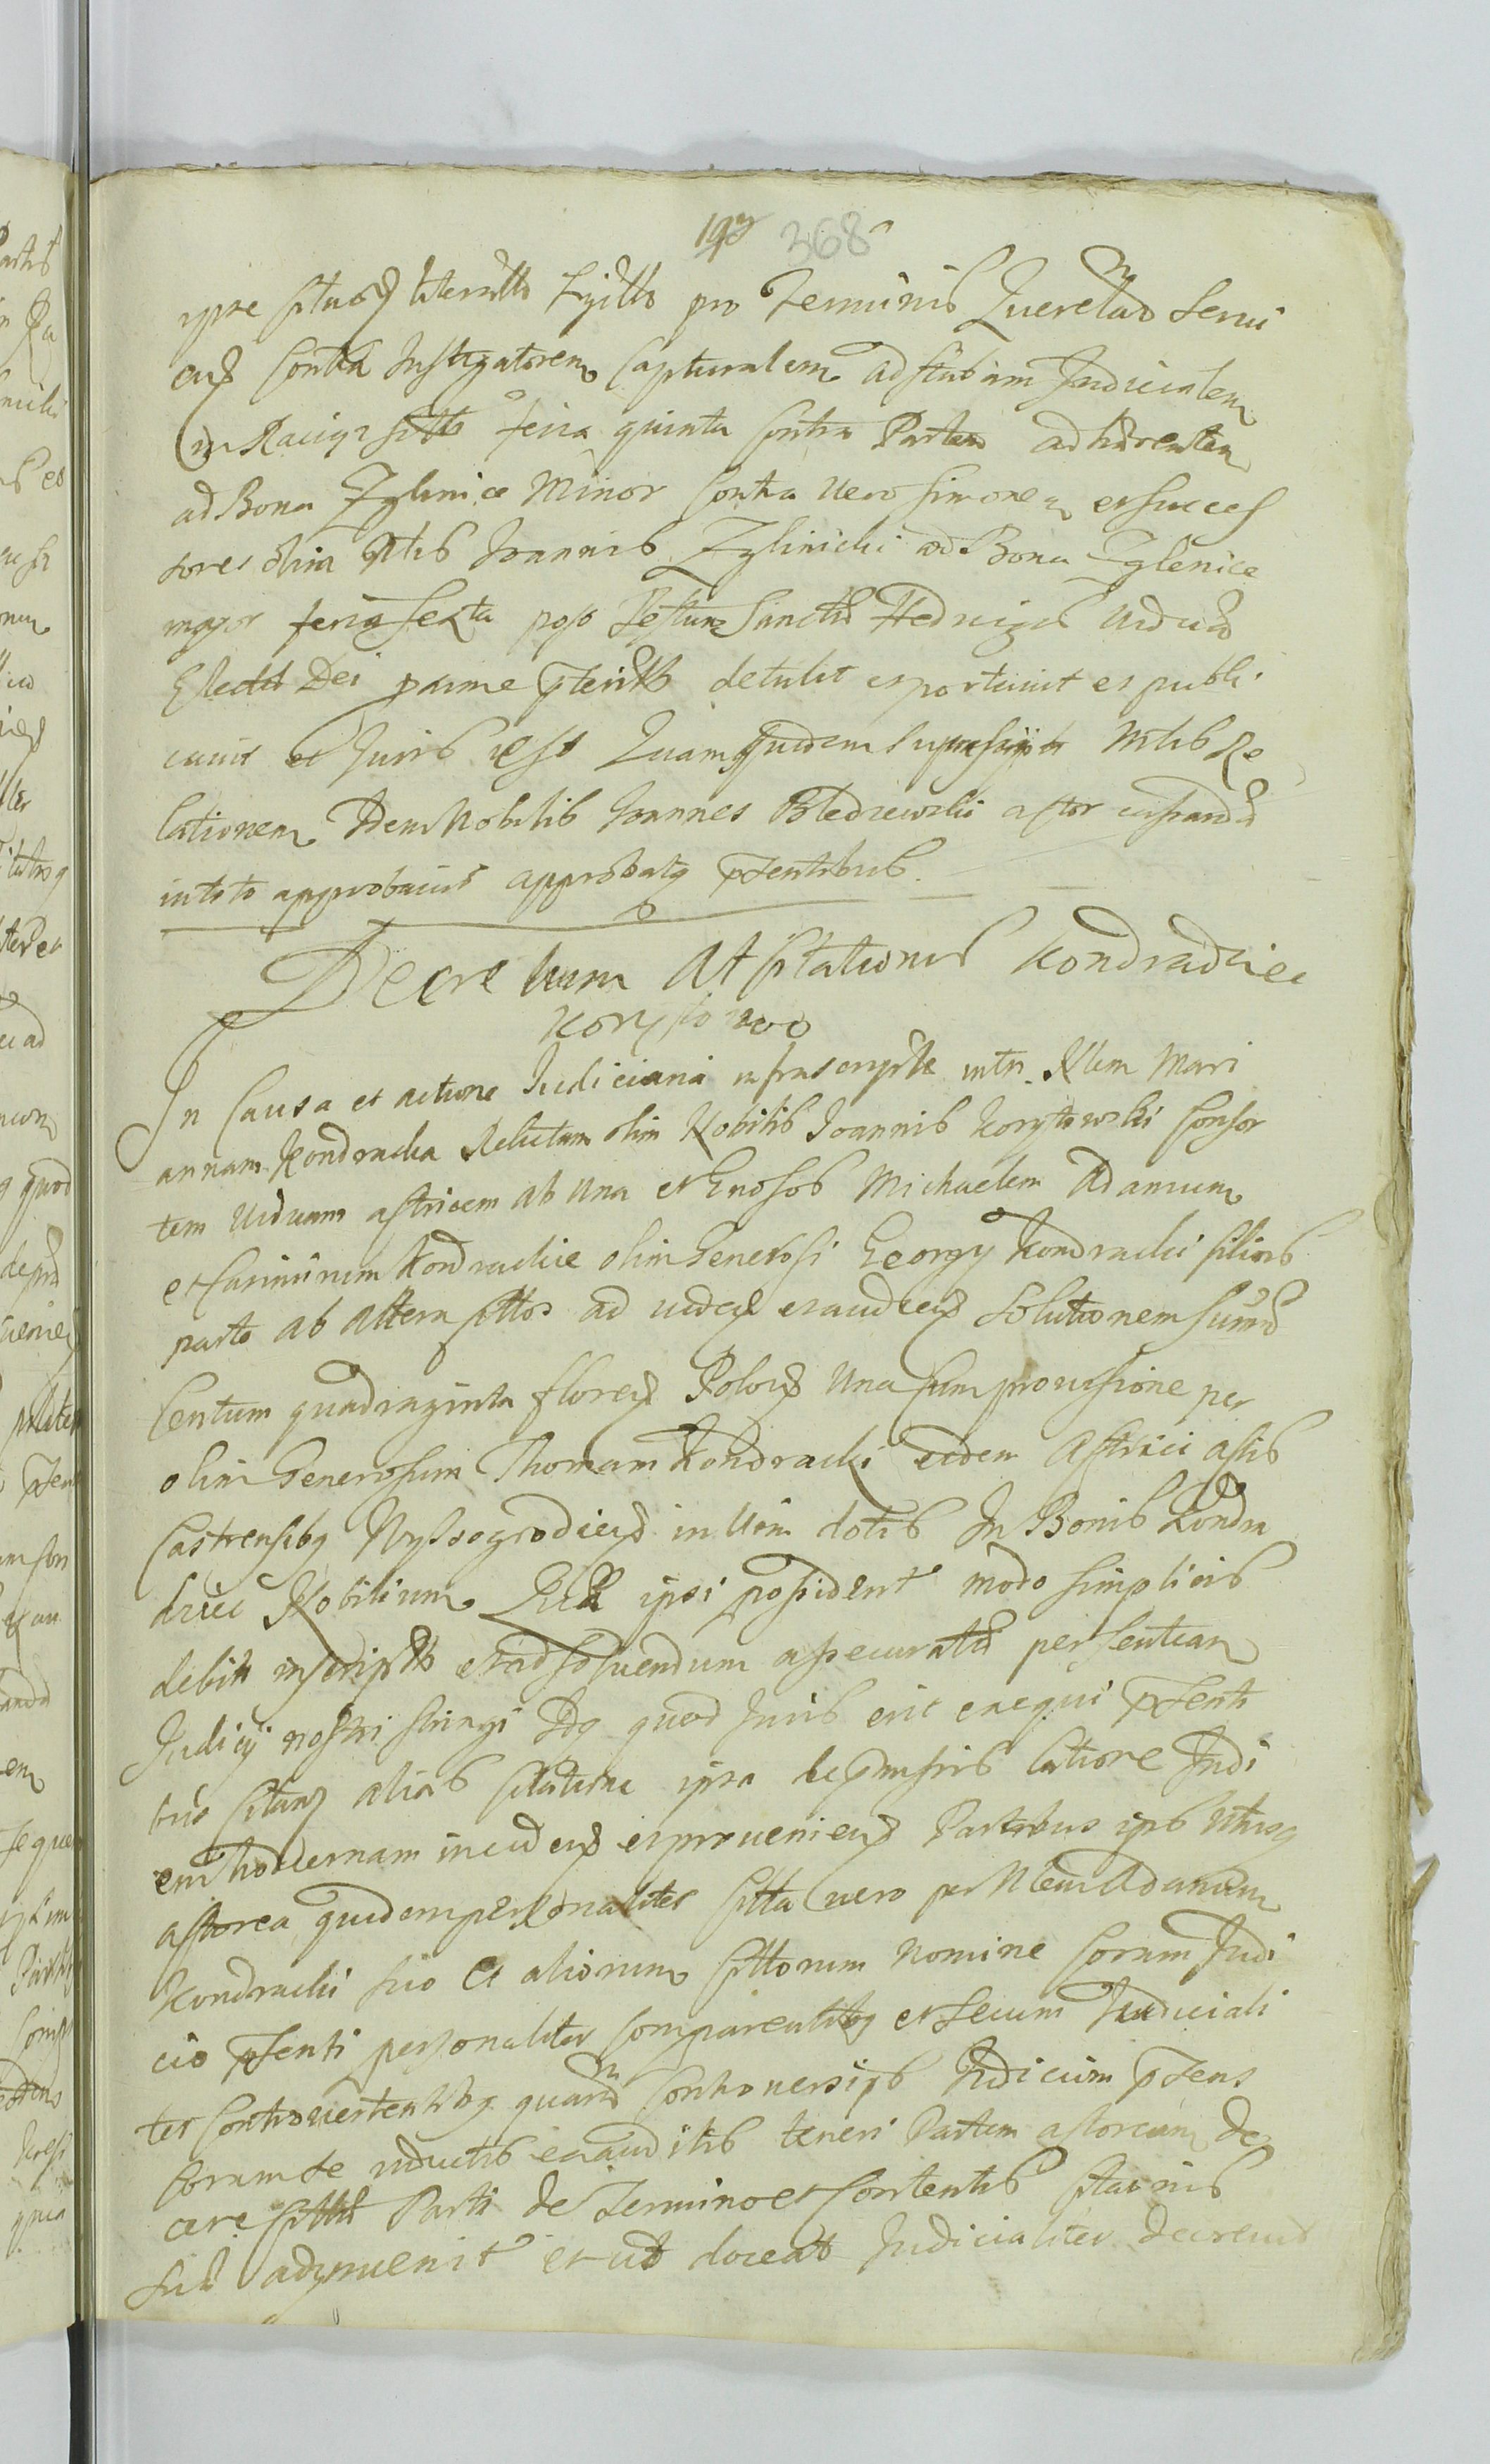 193 368
ipse literalis pro Terminis Querelae servi
Contra Instigatorem Capturalem ad stubam Judicialem
in feria quinta Contra Partem adhaerentem
ad Bona Zglinice Minor Contra vero Simonem et succes
sores olim Nlis Joannis Zglinicki ad Bona Zglenice
major feria sexta post Festum Sanctae Hedvigis Viduae
Electae Dei detulit et portavit et publi
cavit et Juris est Quamquidem Nlis Re
lationem Idem Nobilis Joannes Bledzewski actor
in toto approbavit approbatq pntibus.
Decretum Attstationis Kondradzice
Korytowo
In Causa et actione Judiciaria infrascripta intr. Nlem Mari
annam Kondracka Relictam olim Nobilis Joannis Korytowski Consor
tem Viduam actricem ab una et Gnosos Michaelem Adamum
et Casimirum Kondrackie olim Generosi Georgy Kondracki filios
parte ab altera cttos ad et solutionem summae
Centum quadraginta floren Polon una cum provisione per
olim Generosum Thomam Kondracki eidem Actrici actis
Castrensibq Wyssogrodien in vim dotis In Bonis Kondra
dzice Nobilium Quae ipsi possident modo simplicis
debiti inscriptae et ad solvendum assecuratae per sententiam
Judicij nostri stringi Idq quod Juris erit exequi pnti
bus citan alias citatione ipsa latiore Judi
em hodiernam inciden et provenien Partibus ipsis utrisq
actorea quidem personaliter citta vero per Nlem Adamum
Kondracki suo et aliorum cttorum nomine Coram Judi
cio pnti personaliter Comparentibq et secum Judiciali
ter Controvertentibq quarum Controversijs Judicium pnens
Coram se inductis exauditis teneri Partem actoream do
cere cittae Parti de Termino et Contentis citationis
suae adinvenit et ut doceat Judicialiter decrevit